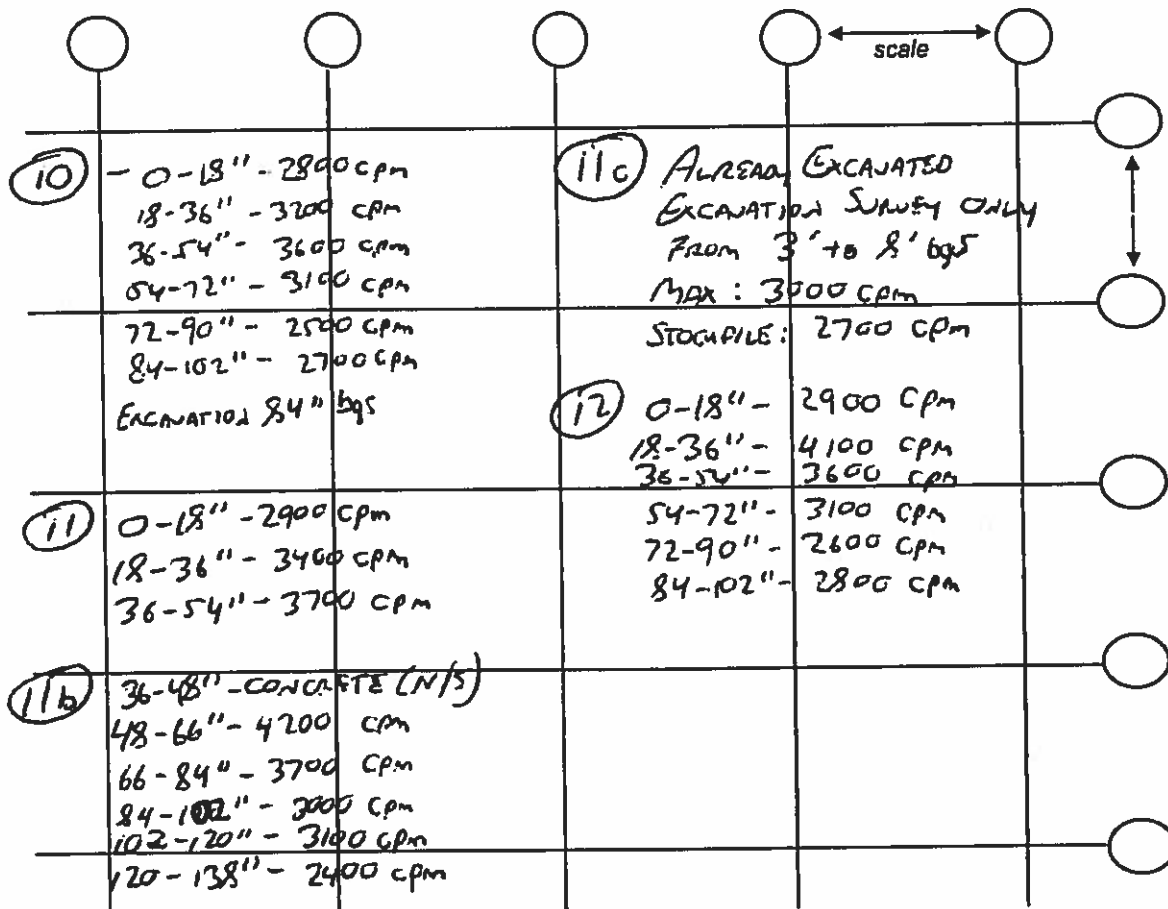 scale
10 - 0-18" - 2800 cpm
18-36" - 3200 cpm
36-54" - 3600 cpm
54-72" - 3100 cpm
72-90" - 2500 cpm
84-102" - 2700 cpm
EXCAVATION 84" bgs
11 0-18" - 2900 cpm
18-36" - 3400 cpm
36-54" - 3700 cpm
11b 36-48" - CONCRETE (N/S)
48-66" - 4200 cpm
66-84" - 3700 cpm
84-102" - 3000 cpm
102-120" - 3100 cpm
120-138" - 2400 cpm
11c ALREADY EXCAVATED
EXCAVATION SURVEY ONLY
FROM 3' to 8' bgs
MAX: 3000 cpm
STOCKPILE: 2700 cpm
12 0-18" - 2900 cpm
18-36" - 4100 cpm
36-54" - 3600 cpm
54-72" - 3100 cpm
72-90" - 2600 cpm
84-102" - 2800 cpm